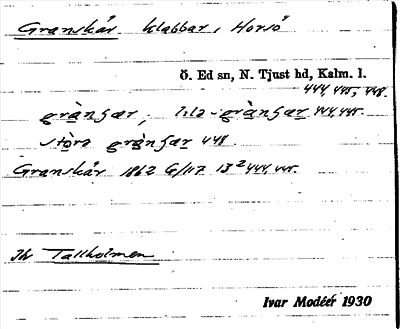 Granskär. klabbar, Horsö
Ö. Ed sn, N. Tjust hd, Kalm. l.
444, 445, 448.
grànʃær, lila-gràngær 444,445.
stòra gràngær 448
Granskär 1862 G/117 13² 444, 445.
Jh Tallholmen
Ivar Modéer 1930